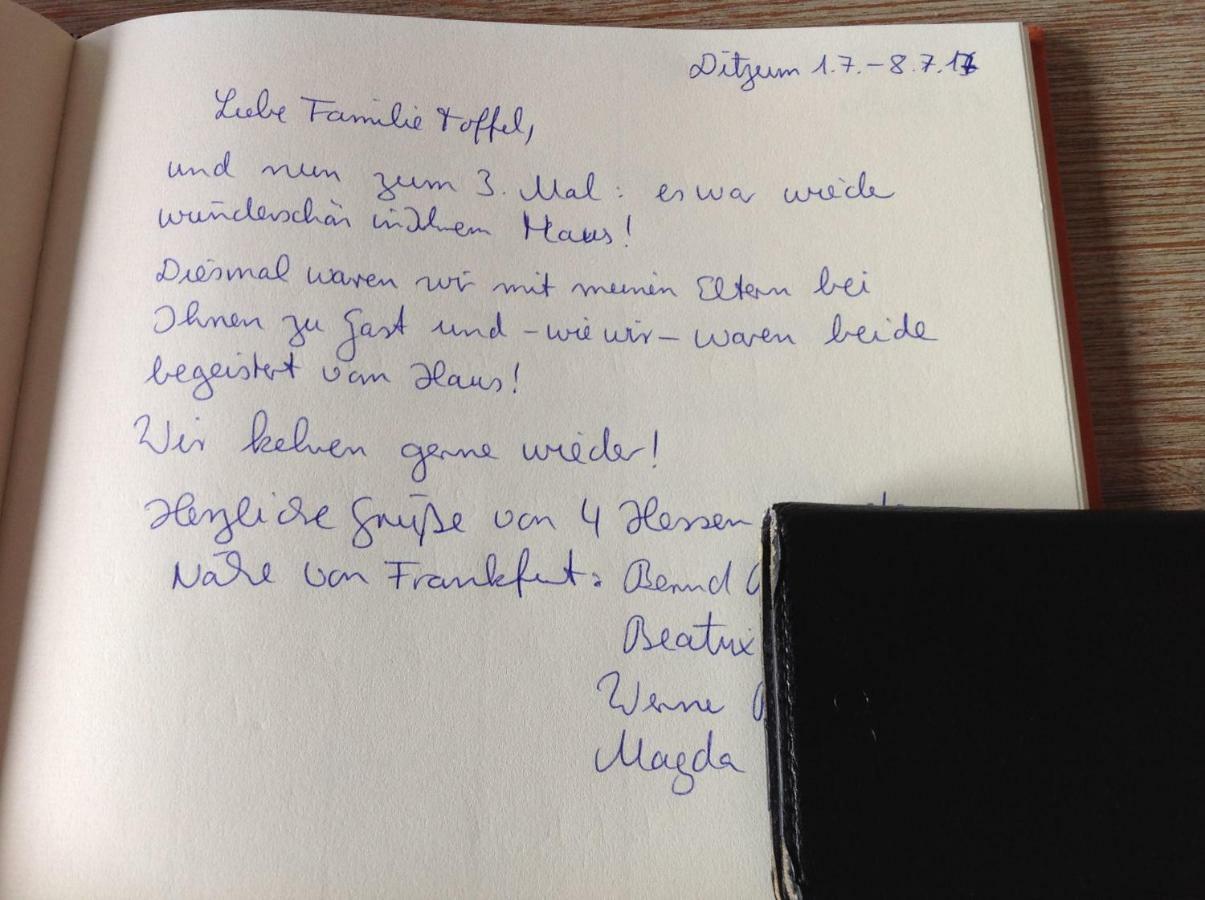 Ditzum 1.7.–8.7.17
Liebe Familie Toffel,
und nun zum 3. Mal: es war wieder
wunderschön in Ihrem Haus!
Diesmal waren wir mit meinen Eltern bei
Ihnen zu Gast und – wie wir – waren beide
begeistert vom Haus!
Wir kehren gerne wieder!
Herzliche Grüße von 4 Hessen
Nähe von Frankfurt: Bernd
Beatrix
Werner
Magda